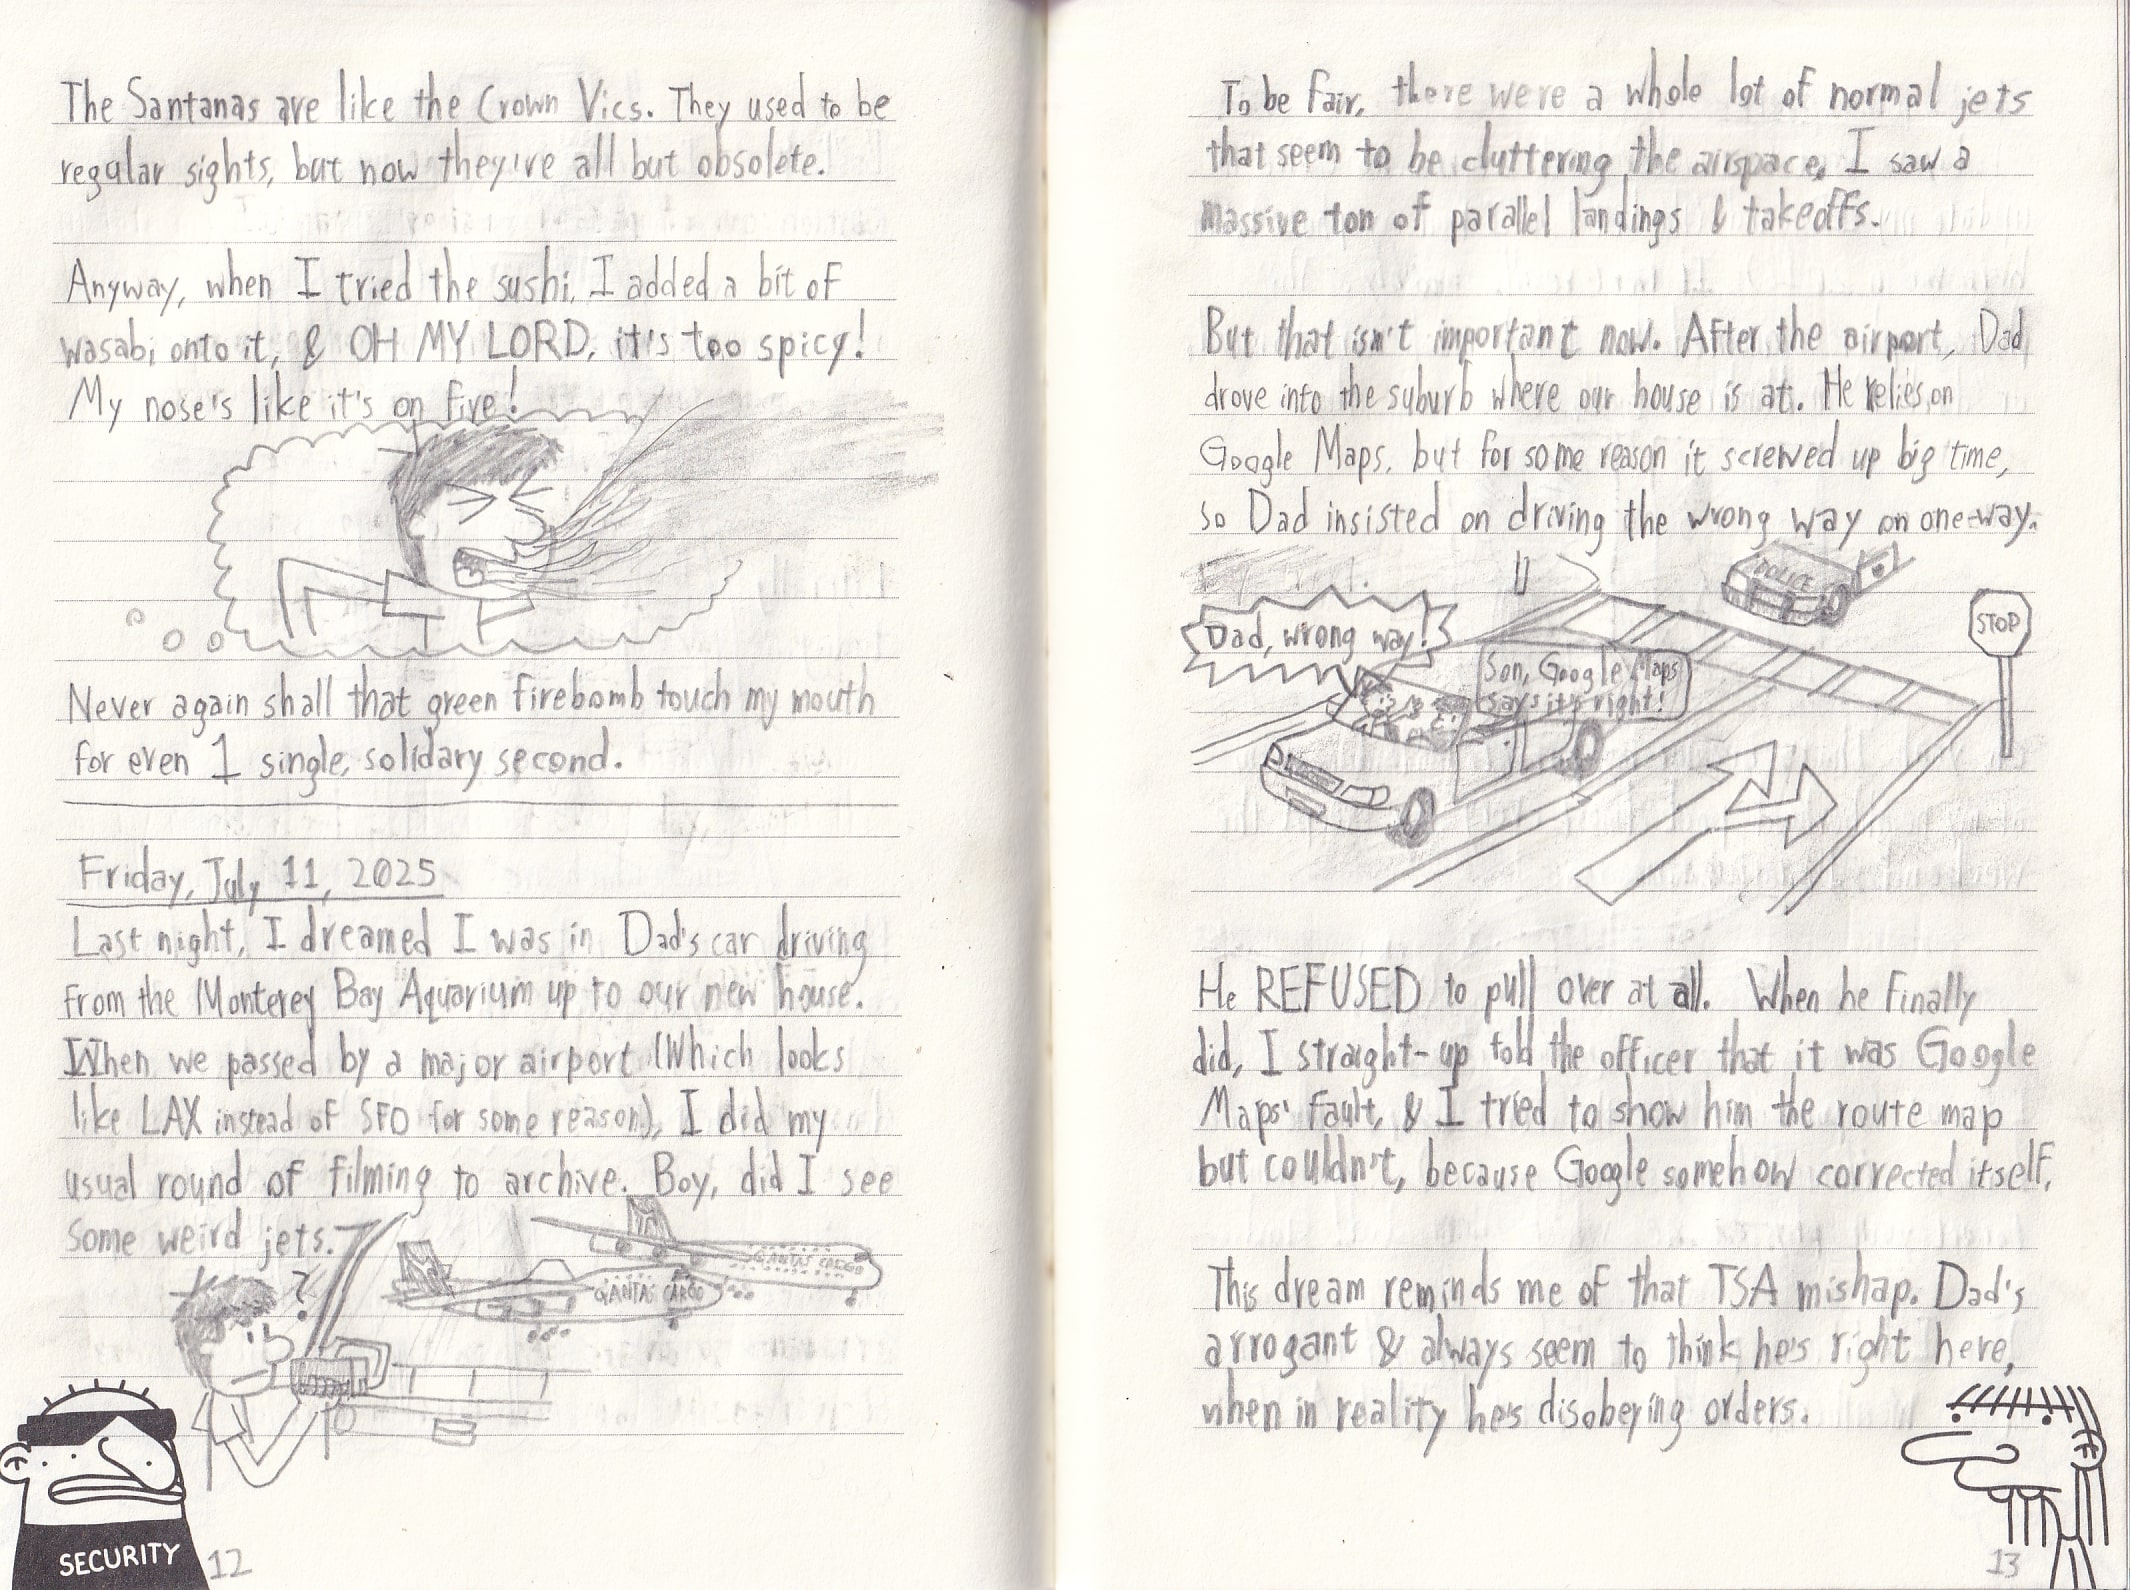 The Santanas are like the Crown Vics. They used to be
regular sights, but now they've all but obsolete.
Anyway, when I tried the sushi, I added a bit of
wasabi onto it, & OH MY LORD, it's too spicy!
My nose's like it's on five!
Never again shall that green firebomb touch my mouth
for even 1 single, solidary second.
Friday, July 11, 2025
Last night, I dreamed I was in Dad's car driving
from the Monterey Bay Aquarium up to our new house.
When we passed by a major airport (Which looks
like LAX instead of SFO for some reason), I did my
usual round of filming to archive. Boy, did I see
some weird jets.
?
QANTAS CARGO
QANTAS CARGO
SECURITY
12
To be fair, there were a whole lot of normal jets
that seem to be cluttering the airspace, I saw a
massive ton of parallel landings & takeoffs.
But that isn't important now. After the airport, Dad
drove into the suburb where our house is at. He relies on
Google Maps, but for some reason it screwed up big time,
so Dad insisted on driving the wrong way on one-way.
POLICE
STOP
Dad, wrong way!
Son, Google Maps
says it's right!
He REFUSED to pull over at all. When he finally
did, I straight-up told the officer that it was Google
Maps' fault, & I tried to show him the route map
but couldn't, because Google somehow corrected itself.
This dream reminds me of that TSA mishap. Dad's
arrogant & always seem to think he's right here,
when in reality he's disobeying orders.
13